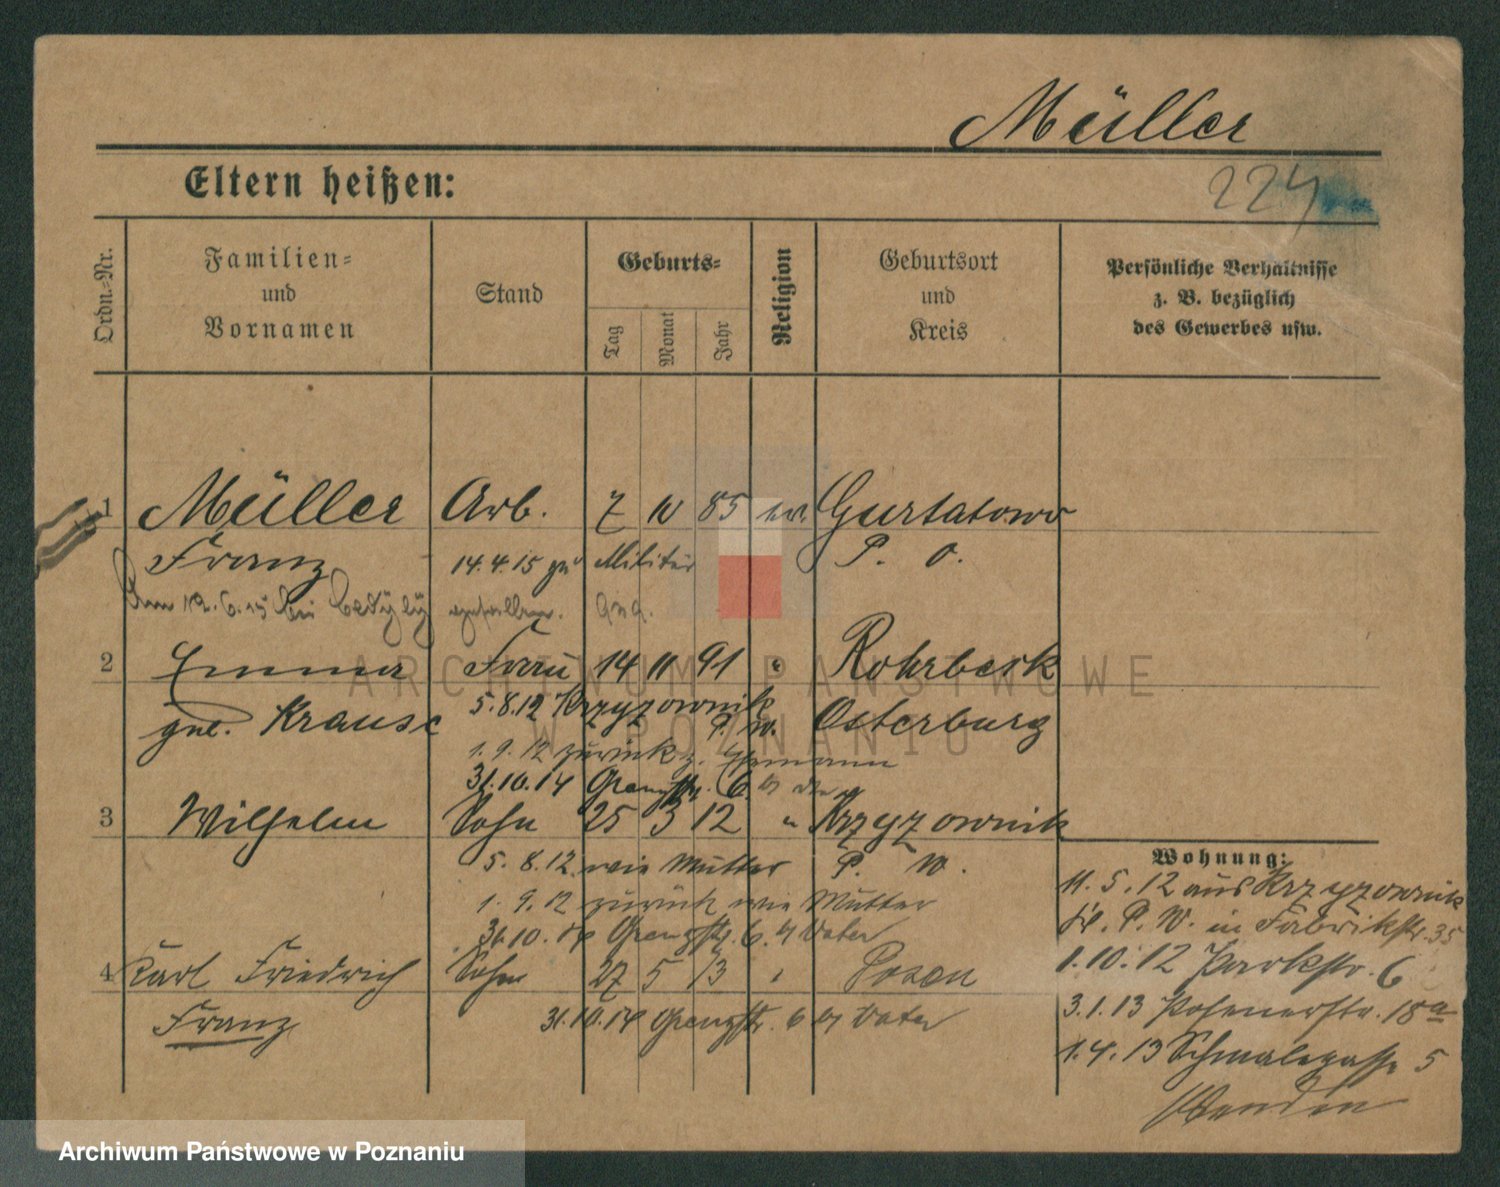 Müller
Eltern heißen:
224
Ordn.-Nr.
Familien-
und
Vornamen
Stand
Geburts-
Tag
Monat
Jahr
Religion
Geburtsort
und
Kreis
Persönliche Verhältnisse
z. B. bezüglich
des Gewerbes usw.
1 Müller Arb. 7 10 85 ev. Gurtatowo
Franz 14.4.15 zu Militär P. O.
Am 12.6.15 bei gefallen.
2 Emma Frau 14 11 91 " Rohrbeck
5.8.12 Krzyzownik
geb. Krause P. W. Osterburg
1.9.12 zurück z. Ehemann
31.10.14 Grenzstr. 6.
3 Wilhelm Sohn 25 3 12 " Krzyzownik
5.8.12 wie Mutter P. W.
1.9.12 zurück wie Mutter
31.10.14 Grenzstr. 6. Vater
4 Karl Friedrich Sohn 27 5 13 " Posen
Franz 31.10.14 Grenzstr. 6 Vater
Wohnung:
11.5.12 aus Krzyzownik
Kr. P. W. in Fabrikstr. 35
1.10.12 Parkstr. 6
3.1.13 Posenerstr. 18a
1.4.13 Schmalegasse 5
ARCHIWUM PAŃSTWOWE
W POZNANIU
Archiwum Państwowe w Poznaniu